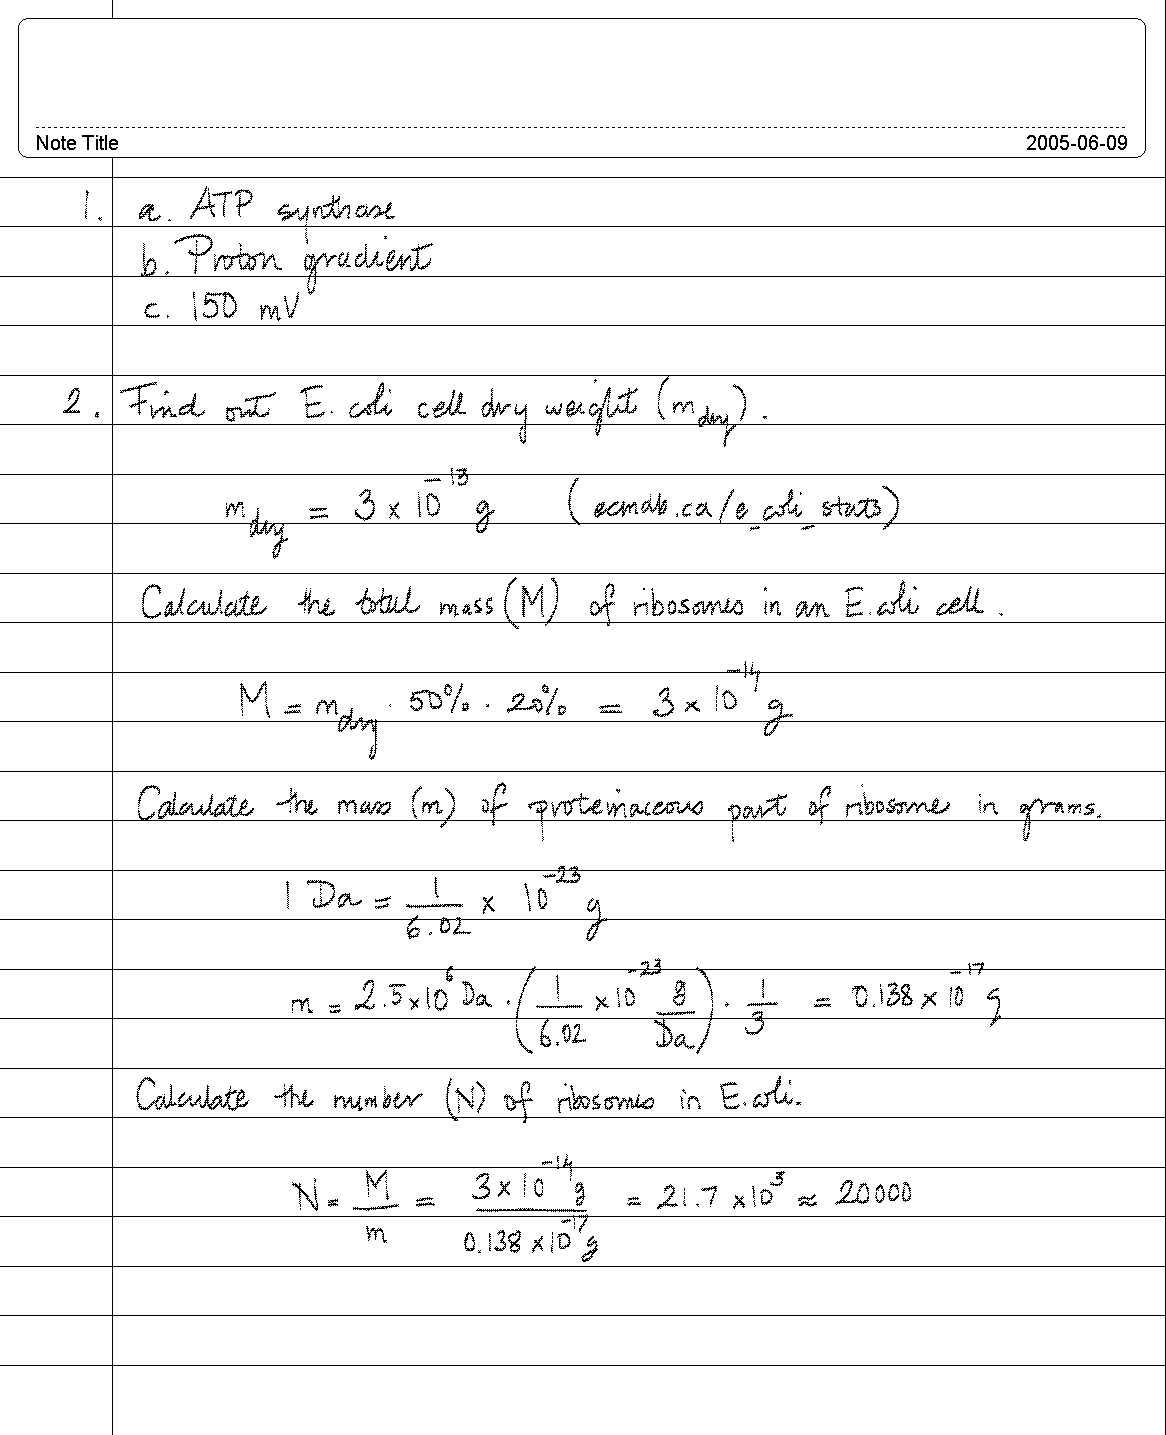 Note Title 2005-06-09
1. a. ATP synthase
b. Proton gradient
c. 150 mV
2. Find out E. coli cell dry weight (m_dry).
m_dry = 3 × 10^-13 g (ecmdb.ca/e_coli_stats)
Calculate the total mass (M) of ribosomes in an E. coli cell.
M = m_dry · 50% · 20% = 3 × 10^-14 g
Calculate the mass (m) of proteinaceous part of ribosome in grams.
1 Da = 1/6.02 × 10^-23 g
m = 2.5 × 10^6 Da · (1/6.02 × 10^-23 g/Da) · 1/3 = 0.138 × 10^-17 g
Calculate the number (N) of ribosomes in E. coli.
N = M/m = 3 × 10^-14 g / 0.138 × 10^-17 g = 21.7 × 10^3 ≈ 20000